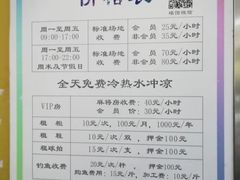 价格表
周一至周五 标准场地 会员 25元/小时
09:00-17:00 收费 非会员 35元/小时
周一至周五
17:00-22:00 标准场地 会员 70元/小时
周末及节假日 收费 非会员 80元/小时
全天免费冷热水冲凉
VIP房 麻将房收费: 40元/小时
会员价: 30元/小时
租鞋 10元/次, 100元/月, 1000元/年
租鞋 10元/次/双, 押金100元
租球拍 15元/次/支, 押金100元
钓鱼收费 20元/杆, 押金100元
购鱼: 15元/斤, 加工费: 10元/斤